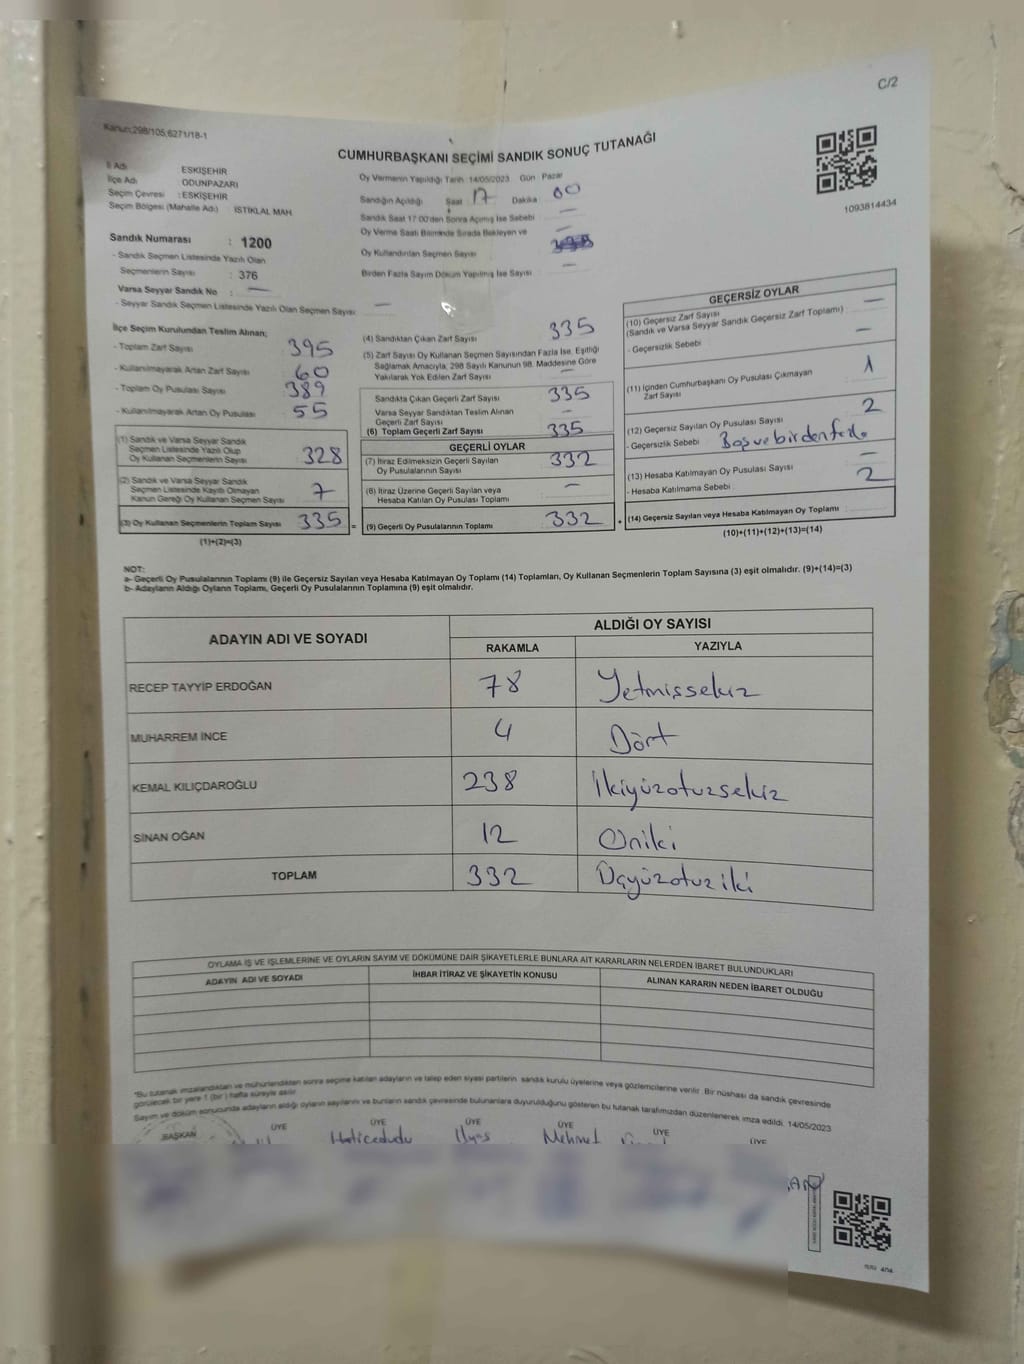 C/2
Kanun:298/105;6271/18-1
CUMHURBAŞKANI SEÇİMİ SANDIK SONUÇ TUTANAĞI
1093814434
İl Adı : ESKİŞEHİR
İlçe Adı : ODUNPAZARI
Seçim Çevresi : ESKİŞEHİR
Seçim Bölgesi (Mahalle Adı) : İSTİKLAL MAH.
Sandık Numarası : 1200
- Sandık Seçmen Listesinde Yazılı Olan
Seçmenlerin Sayısı : 376
Varsa Seyyar Sandık No : —
- Seyyar Sandık Seçmen Listesinde Yazılı Olan Seçmen Sayısı: —
Oy Vermenin Yapıldığı Tarih :14/05/2023 Gün :Pazar
Sandığın Açıldığı Saat : 17 Dakika : 00
Sandık Saat 17:00'den Sonra Açılmış İse Sebebi : —
Oy Verme Saati Bitiminde Sırada Bekleyen ve
Oy Kullandırılan Seçmen Sayısı
Birden Fazla Sayım Döküm Yapılmış İse Sayısı : —
İlçe Seçim Kurulundan Teslim Alınan;
- Toplam Zarf Sayısı : 395
- Kullanılmayarak Artan Zarf Sayısı : 60
- Toplam Oy Pusulası Sayısı : 389
- Kullanılmayarak Artan Oy Pusulası : 55
(1) Sandık ve Varsa Seyyar Sandık
Seçmen Listesinde Yazılı Olup
Oy Kullanan Seçmenlerin Sayısı : 328
(2) Sandık ve Varsa Seyyar Sandık
Seçmen Listesinde Kayıtlı Olmayan
Kanun Gereği Oy Kullanan Seçmen Sayısı : 7
(3) Oy Kullanan Seçmenlerin Toplam Sayısı : 335 =
(1)+(2)=(3)
(4) Sandıktan Çıkan Zarf Sayısı : 335
(5) Zarf Sayısı Oy Kullanan Seçmen Sayısından Fazla İse, Eşitliği
Sağlamak Amacıyla, 298 Sayılı Kanunun 98. Maddesine Göre
Yakılarak Yok Edilen Zarf Sayısı : —
Sandıkta Çıkan Geçerli Zarf Sayısı : 335
Varsa Seyyar Sandıktan Teslim Alınan
Geçerli Zarf Sayısı : —
(6) Toplam Geçerli Zarf Sayısı : 335
GEÇERLİ OYLAR
(7) İtiraz Edilmeksizin Geçerli Sayılan
Oy Pusulalarının Sayısı : 332
(8) İtiraz Üzerine Geçerli Sayılan veya
Hesaba Katılan Oy Pusulası Toplamı : —
(9) Geçerli Oy Pusulalarının Toplamı : 332 +
GEÇERSİZ OYLAR
(10) Geçersiz Zarf Sayısı : —
(Sandık ve Varsa Seyyar Sandık Geçersiz Zarf Toplamı)
- Geçersizlik Sebebi : —
(11) İçinden Cumhurbaşkanı Oy Pusulası Çıkmayan
Zarf Sayısı : 1
(12) Geçersiz Sayılan Oy Pusulası Sayısı : 2
- Geçersizlik Sebebi : Boş ve birden fazla
(13) Hesaba Katılmayan Oy Pusulası Sayısı : —
- Hesaba Katılmama Sebebi : 2
(14) Geçersiz Sayılan veya Hesaba Katılmayan Oy Toplamı :
(10)+(11)+(12)+(13)=(14)
NOT:
a- Geçerli Oy Pusulalarının Toplamı (9) ile Geçersiz Sayılan veya Hesaba Katılmayan Oy Toplamı (14) Toplamları, Oy Kullanan Seçmenlerin Toplam Sayısına (3) eşit olmalıdır. (9)+(14)=(3)
b- Adayların Aldığı Oyların Toplamı, Geçerli Oy Pusulalarının Toplamına (9) eşit olmalıdır.
ADAYIN ADI VE SOYADI
ALDIĞI OY SAYISI
RAKAMLA YAZIYLA
RECEP TAYYİP ERDOĞAN 78 Yetmişsekiz
MUHARREM İNCE 4 Dört
KEMAL KILIÇDAROĞLU 238 İkiyüzotuzsekiz
SİNAN OĞAN 12 Oniki
TOPLAM 332 Üçyüzotuziki
OYLAMA İŞ VE İŞLEMLERİNE VE OYLARIN SAYIM VE DÖKÜMÜNE DAİR ŞİKAYETLERLE BUNLARA AİT KARARLARIN NELERDEN İBARET BULUNDUKLARI
ADAYIN ADI VE SOYADI İHBAR İTİRAZ VE ŞİKAYETİN KONUSU ALINAN KARARIN NEDEN İBARET OLDUĞU
*Bu tutanak imzalandıktan ve mühürlendikten sonra seçime katılan adayların ve talep eden siyasi partilerin sandık kurulu üyelerine veya gözlemcilerine verilir. Bir nüshası da sandık çevresinde
görülecek bir yere 1 (bir) hafta süreyle asılır.
Sayım ve döküm sonucunda adayların aldığı oyların sayılarını ve bunların sandık çevresinde bulunanlara duyurulduğunu gösteren bu tutanak tarafımızdan düzenlenerek imza edildi. 14/05/2023
BAŞKAN ÜYE ÜYE ÜYE ÜYE ÜYE ÜYE
Haticedudu İlyas Mehmet